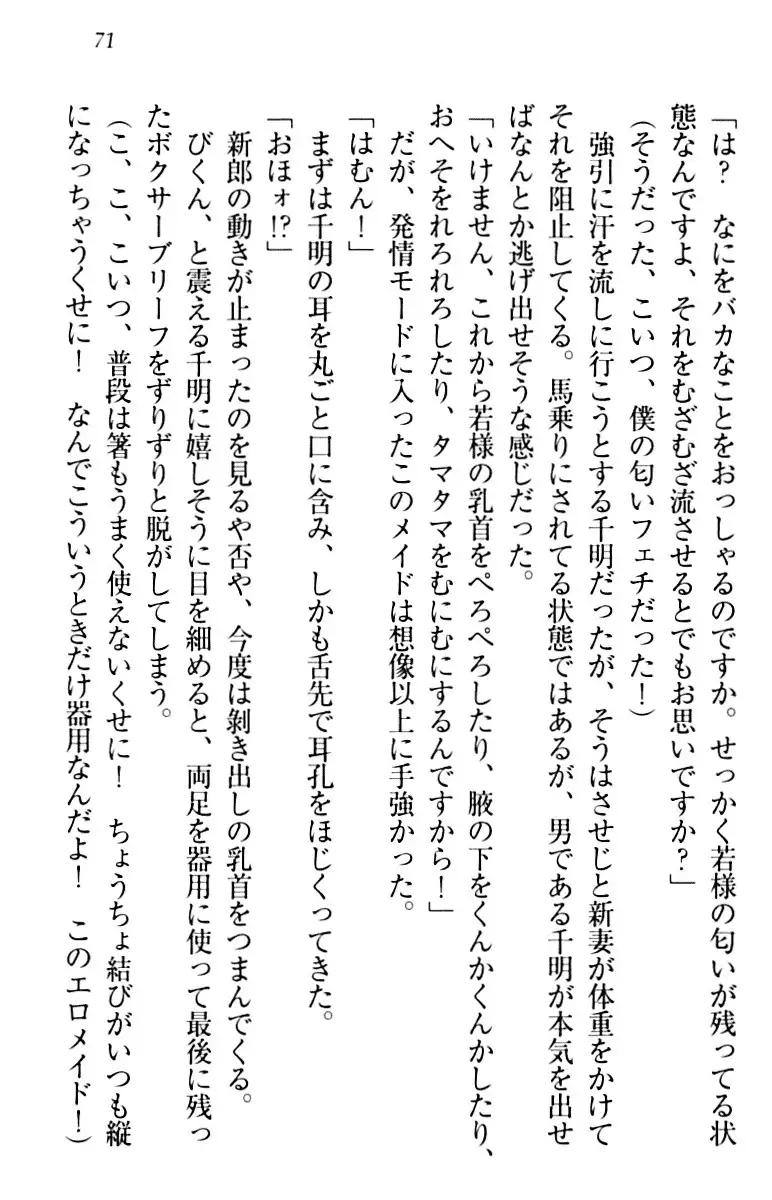 71
「は？　なにをバカなことをおっしゃるのですか。せっかく若様の匂いが残ってる状
態なんですよ、それをむざむざ流させるとでもお思いですか？」
（そうだった、こいつ、僕の匂いフェチだった！）
強引に汗を流しに行こうとする千明だったが、そうはさせじと新妻が体重をかけて
それを阻止してくる。馬乗りにされてる状態ではあるが、男である千明が本気を出せ
ばなんとか逃げ出せそうな感じだった。
「いけません、これから若様の乳首をぺろぺろしたり、腋の下をくんかくんかしたり、
おへそをれろれろしたり、タマタマをむにむにするんですから！」
だが、発情モードに入ったこのメイドは想像以上に手強かった。
「はむん！」
まずは千明の耳を丸ごと口に含み、しかも舌先で耳孔をほじくってきた。
「おほォ!?」
新郎の動きが止まったのを見るや否や、今度は剝き出しの乳首をつまんでくる。
びくん、と震える千明に嬉しそうに目を細めると、両足を器用に使って最後に残っ
たボクサーブリーフをずりずりと脱がしてしまう。
（こ、こ、こいつ、普段は箸もうまく使えないくせに！　ちょうちょ結びがいつも縦
になっちゃうくせに！　なんでこういうときだけ器用なんだよ！　このエロメイド！）